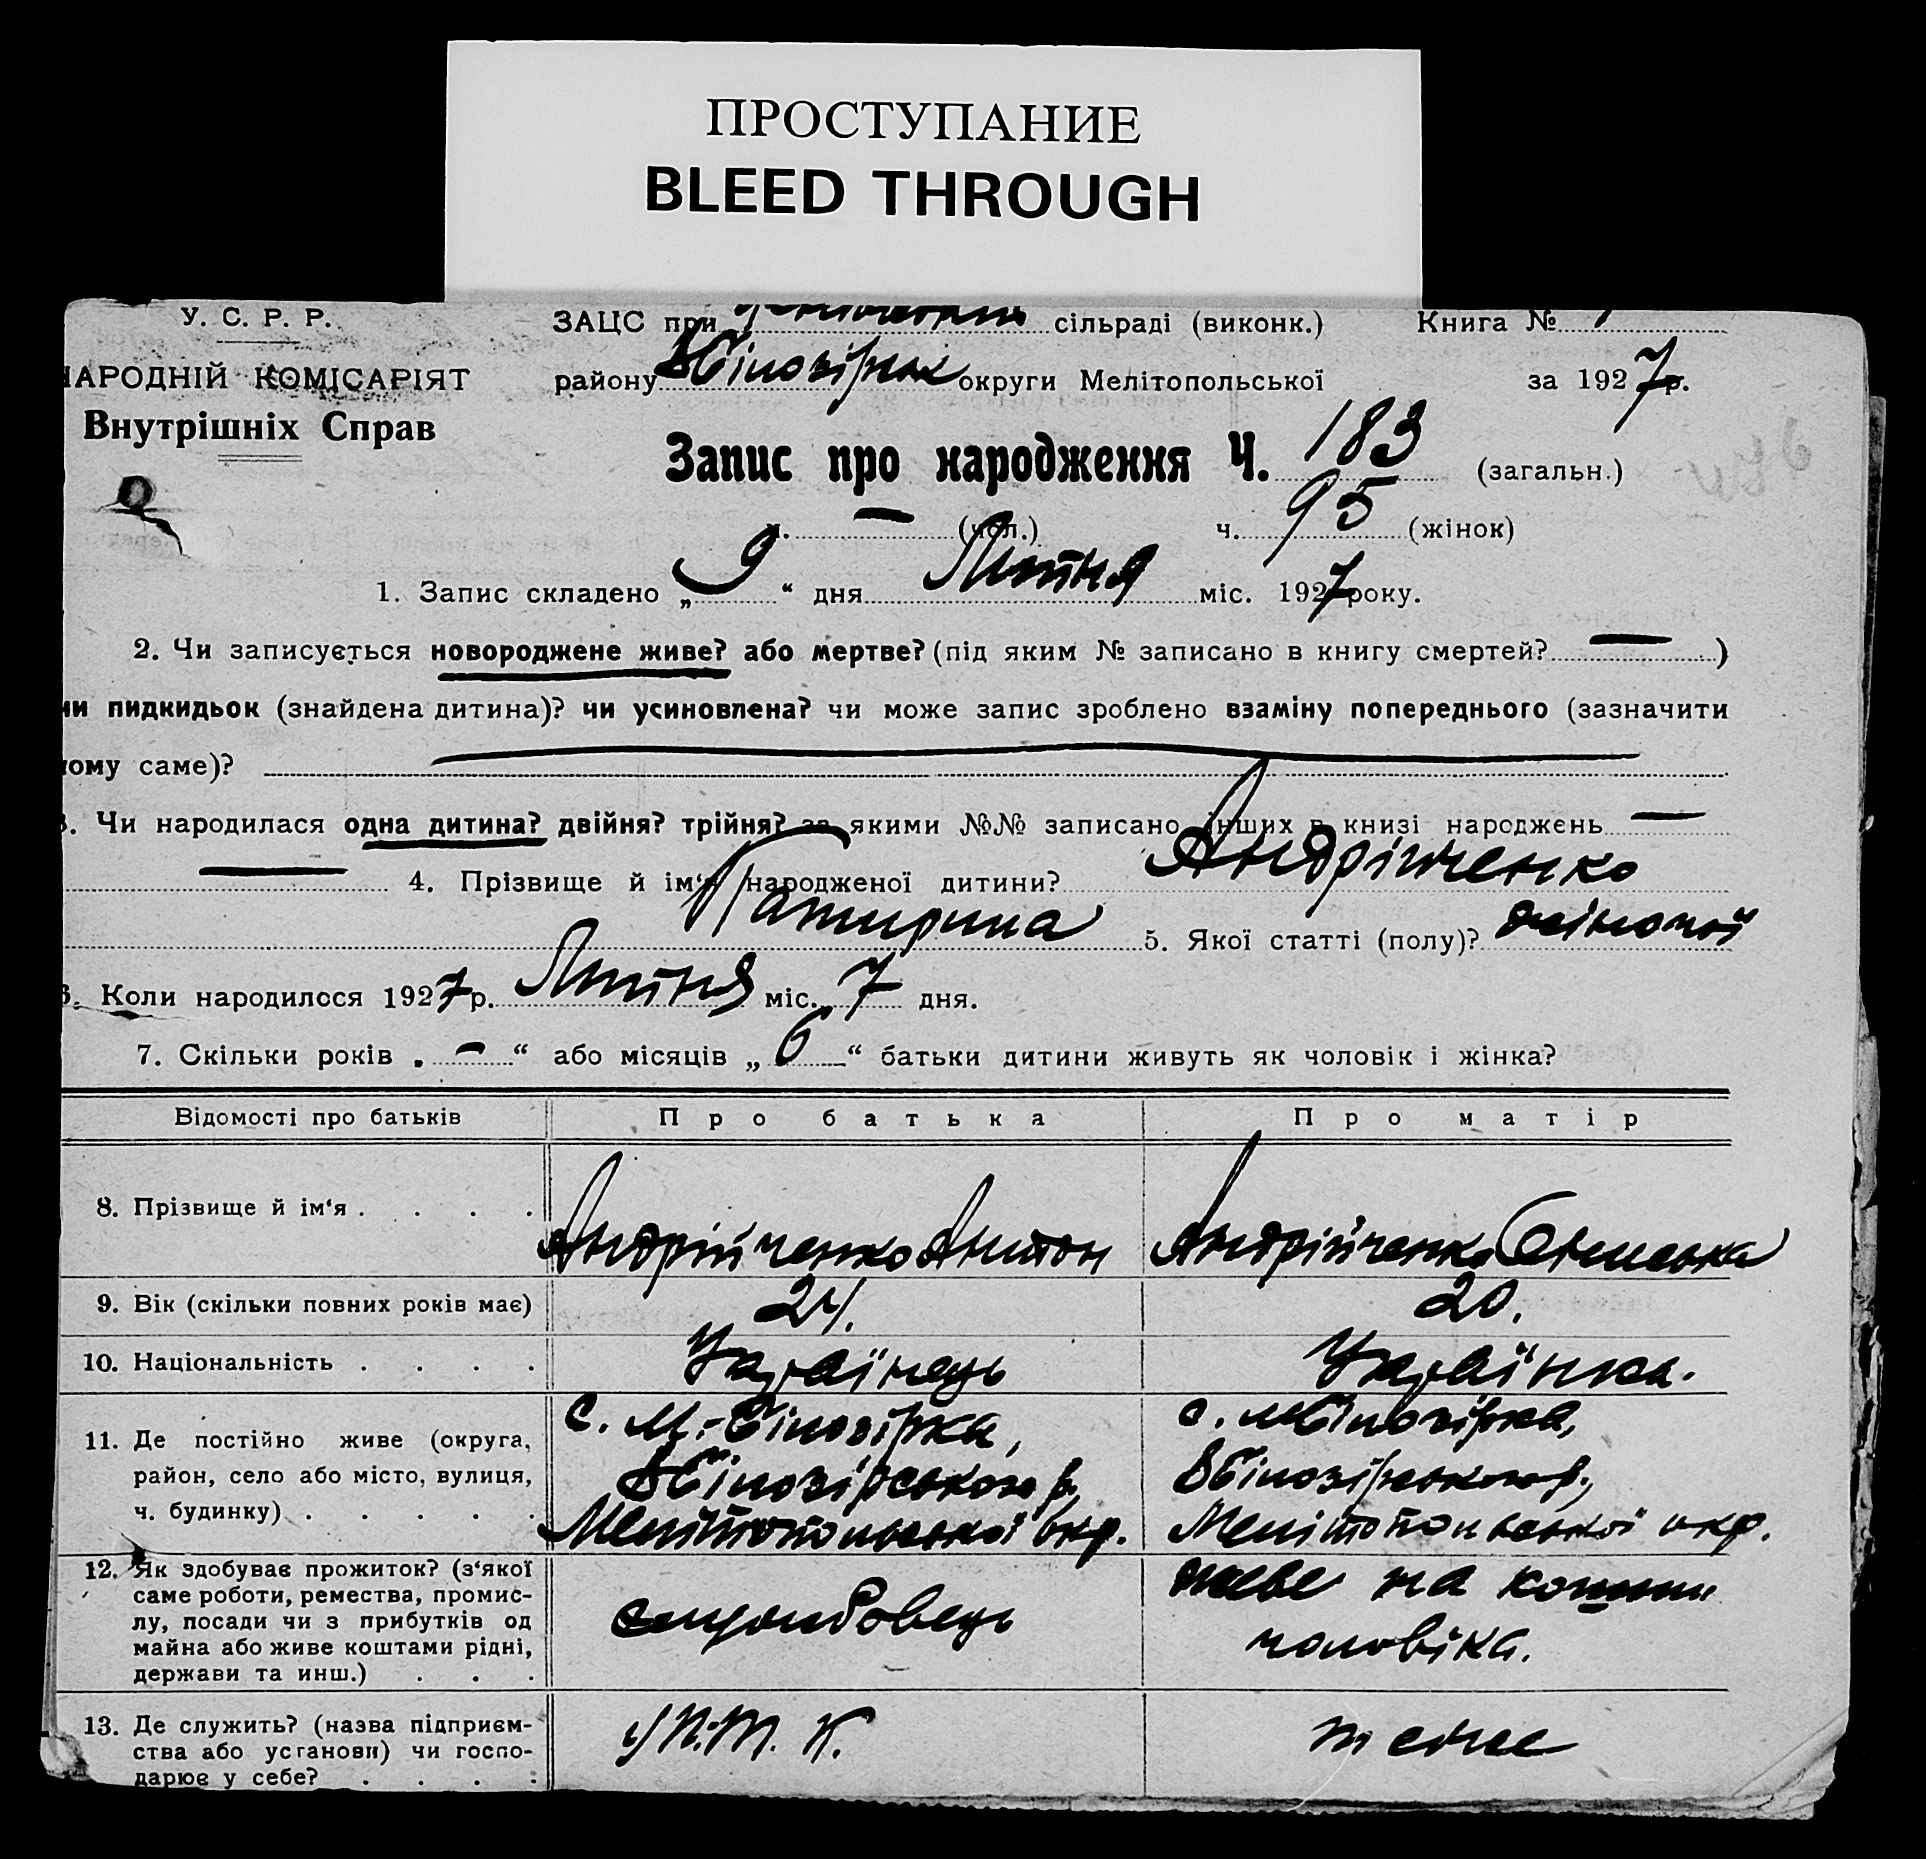 ПРОСТУПАНИЕ
BLEED THROUGH
У. С. Р. Р.
ЗАЦС при сільраді (виконк.) Книга №
НАРОДНІЙ КОМІСАРІЯТ
району ВБілозірськ округи Мелітопольської за 1927 р.
Внутрішніх Справ
Запис про народження Ч. 183 (загальн.)
ч. — (чол.) ч. 95 (жінок)
1. Запис складено „ 9 “ дня Лютня міс. 1927 року.
2. Чи записується новороджене живе? або мертве? (під яким № записано в книгу смертей? — )
чи пидкидьок (знайдена дитина)? чи усиновлена? чи може запис зроблено взаміну попереднього (зазначити
чому саме)?
3. Чи народилася одна дитина? двійня? трійня? за якими №№ записано інших в книзі народжень —
— 4. Прізвище й ім‘я народженої дитини? Андрійченко
Катирина 5. Якої статті (полу)? жіночої
6. Коли народилося 1927 р. Лютня міс. 7 дня.
7. Скільки років „ - “ або місяців „ 6 “ батьки дитини живуть як чоловік і жінка?
Відомості про батьків Про батька Про матір
8. Прізвище й ім‘я . . . . Андрійченко Антон Андрійченко
9. Вік (скільки повних років має) 24. 20.
10. Національність . . . . Українець Українка.
11. Де постійно живе (округа, район, село або місто, вулиця, ч. будинку) . . . . .
с. М.-Білозірка, с. мБілозірка,
ВБілозірського р. ВБілозірського р.,
Мелітопольської окр. Мелітопольської окр.
12. Як здобуває прожиток? (з‘якої
саме роботи, ремества, промис-
лу, посади чи з прибутків од
майна або живе коштами рідні,
держави та инш.) . . .
службовець
живе на кошти
чоловіка.
13. Де служить? (назва підприєм-
ства або установи) чи госпо-
дарює у себе? . . . .
теж